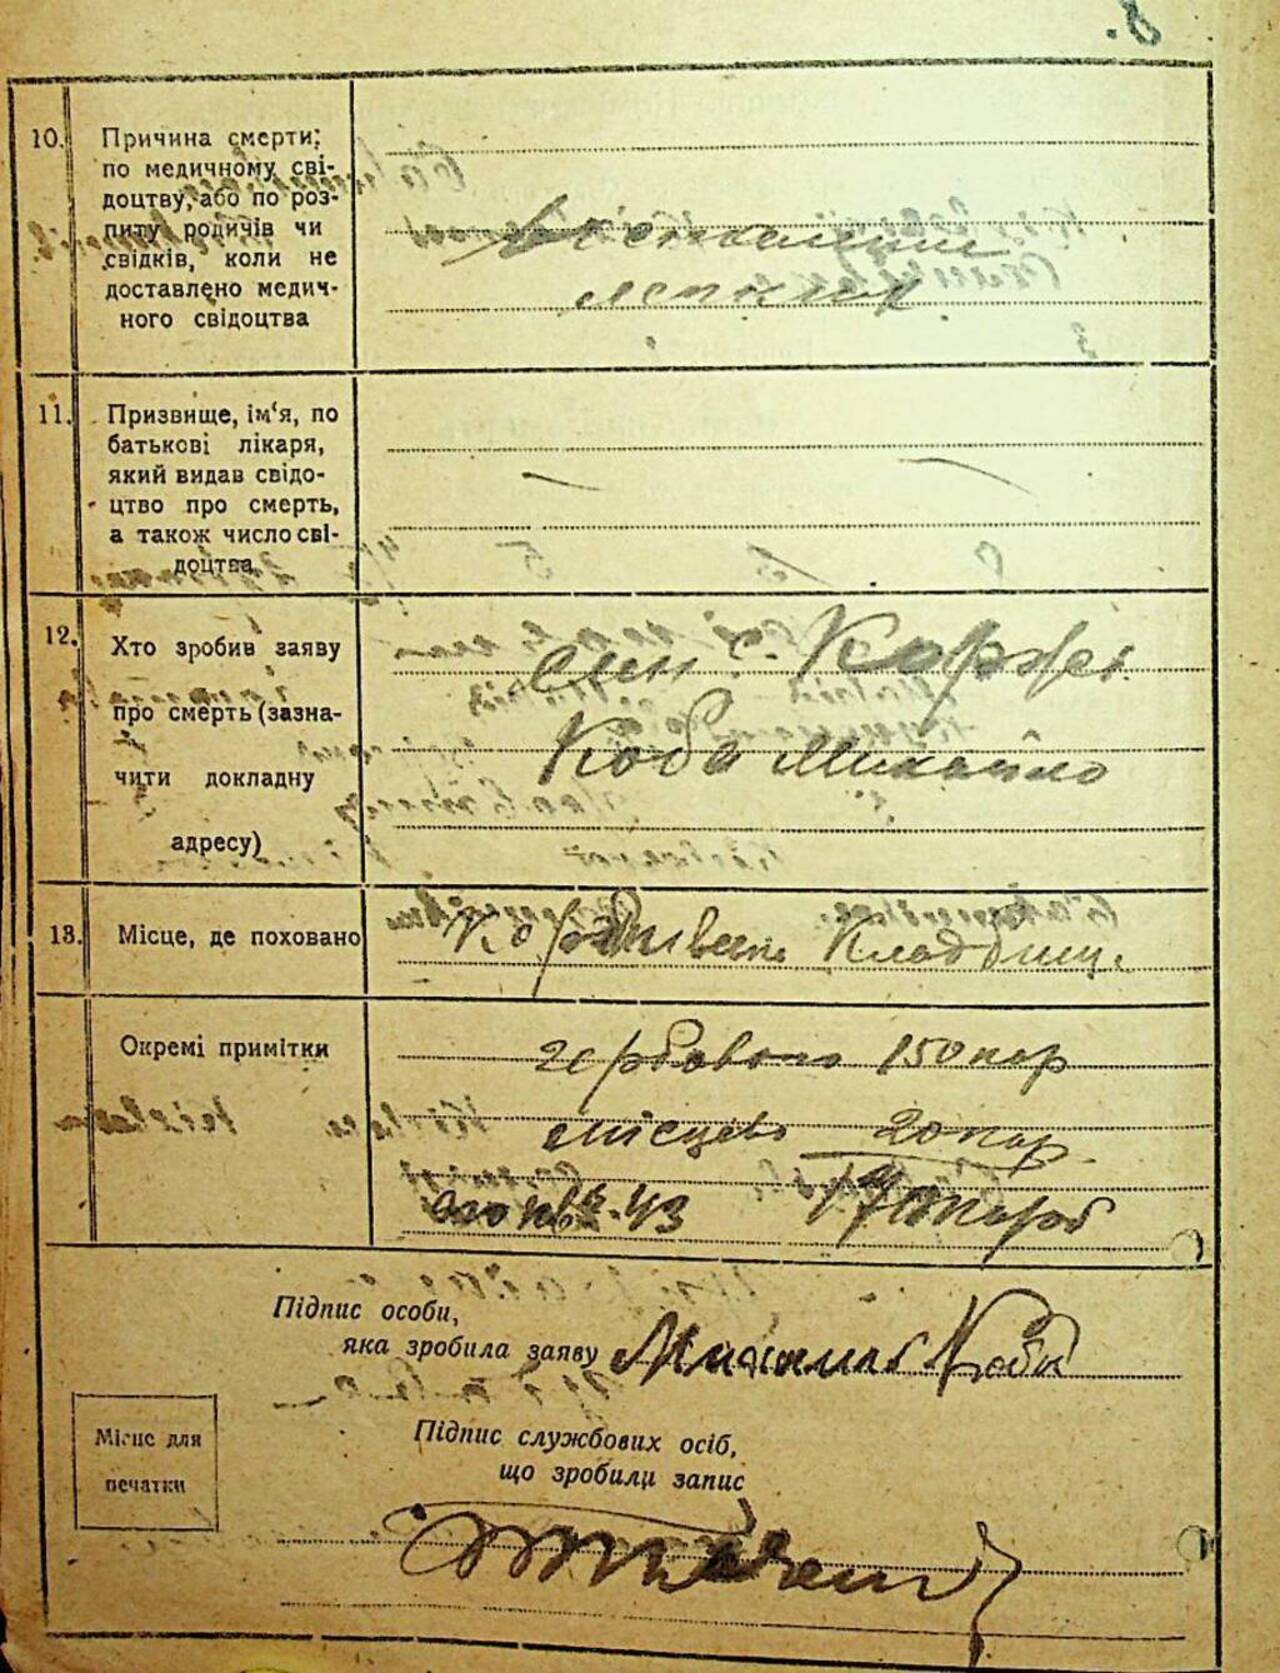 8.
10. Причина смерти;
по медичному сві-
доцтву, або по роз-
питу родичів чи
свідків, коли не
доставлено медич-
ного свідоцтва
Воспаление
легких
11. Призвище, ім‘я, по
батькові лікаря,
який видав свідо-
цтво про смерть,
а також число сві-
доцтва
12. Хто зробив заяву
про смерть (зазна-
чити докладну
адресу)
син с. Коржі
Коба Михайло
13. Місце, де поховано
Кладбище
Окремі примітки
гербового 150 кар
місцево 20 кар
43 170 карб
Підпис особи,
яка зробила заяву Коба
Місце для
печатки
Підпис службових осіб,
що зробили запис